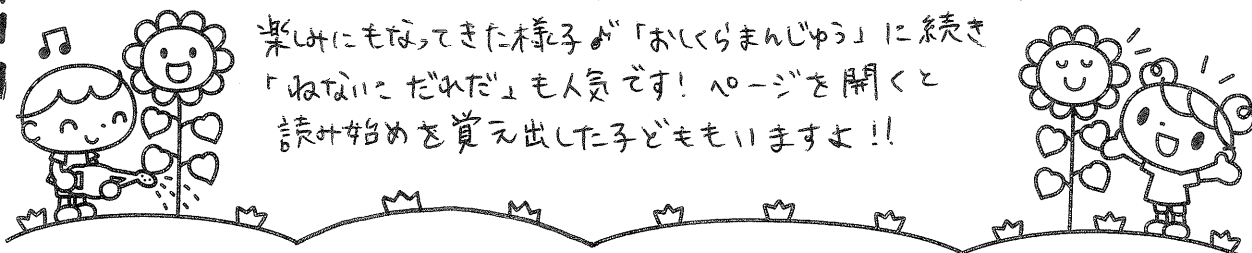 楽しみにもなってきた様子♪「おしくらまんじゅう」に続き
「ねないこ だれだ」も人気です! ページを開くと
読み始めを覚え出した子どももいますよ!!